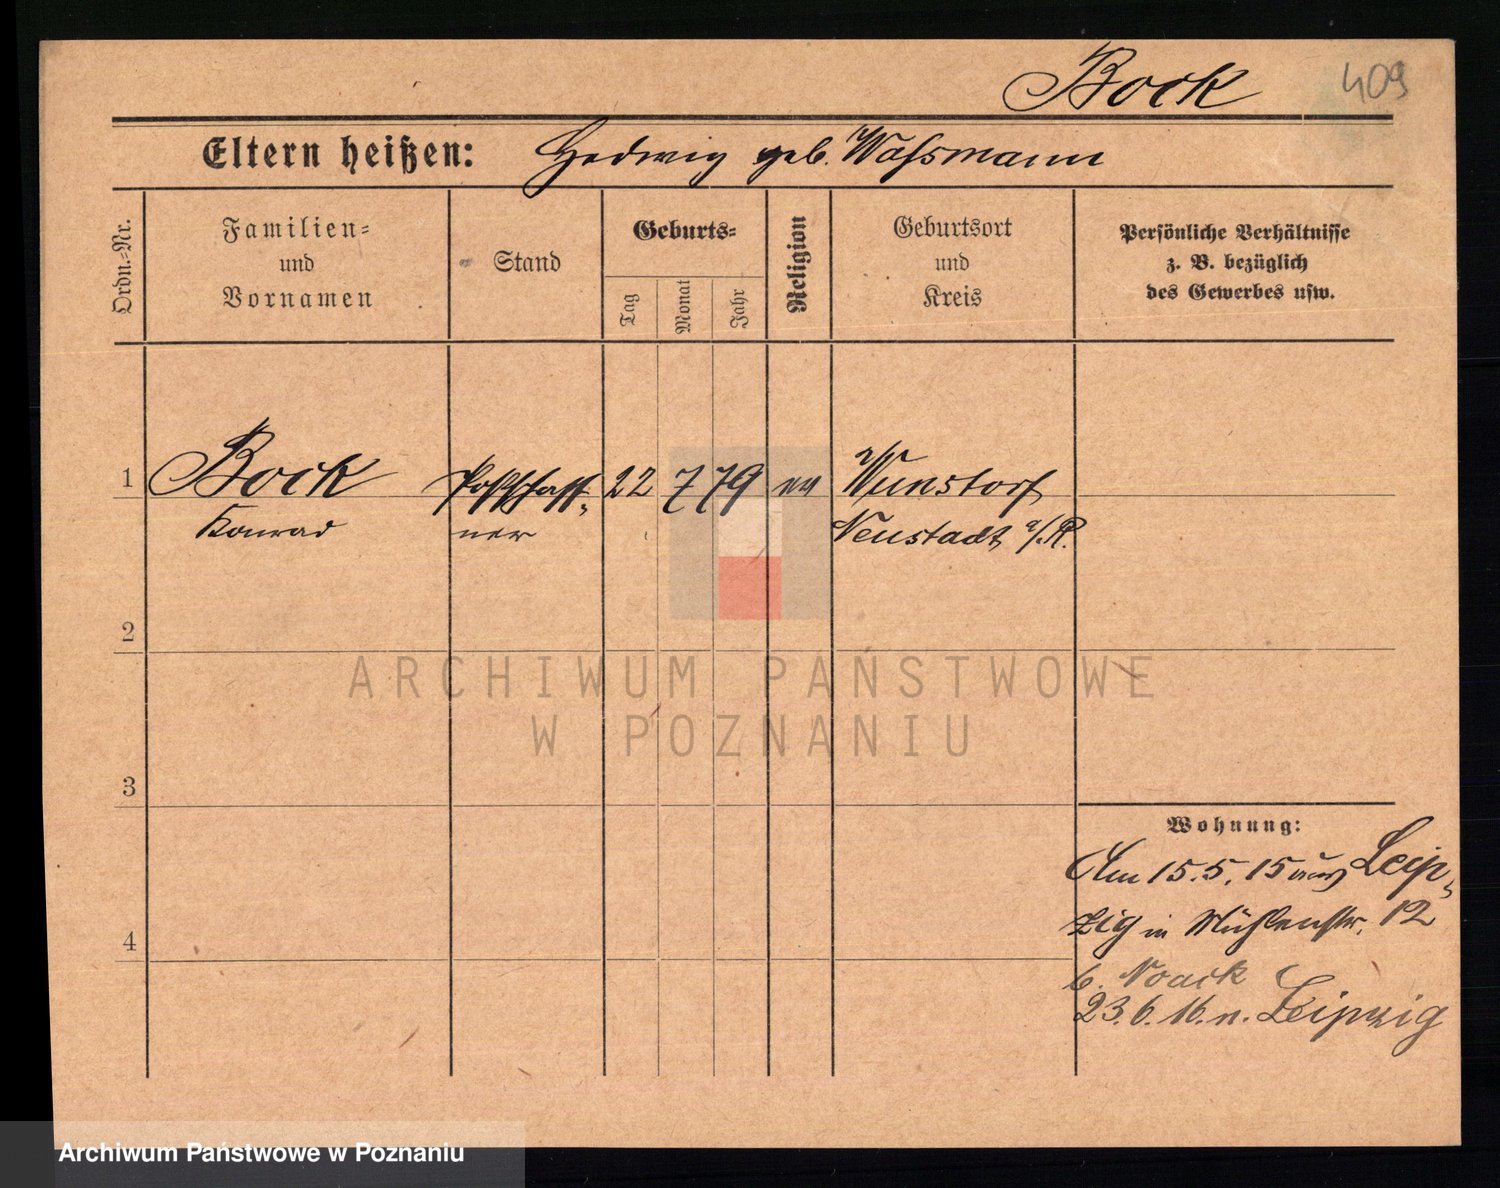 Bock 409
Eltern heißen: Hedwig geb. Waßmann
Ordn.-Nr.
Familien-
und
Vornamen
Stand
Geburts-
Tag
Monat
Jahr
Religion
Geburtsort
und
Kreis
Persönliche Verhältnisse
z. B. bezüglich
des Gewerbes usw.
1 Bock Postschaff- 22 7 79 ev Wunstorf
Konrad ner Neustadt a/R.
2
ARCHIWUM PAŃSTWOWE
W POZNANIU
3
Wohnung:
Am 15.5.15 aus Leip-
zig in Mühlenstr. 12
4
b. Noack
23.6.16. n. Leipzig
Archiwum Państwowe w Poznaniu